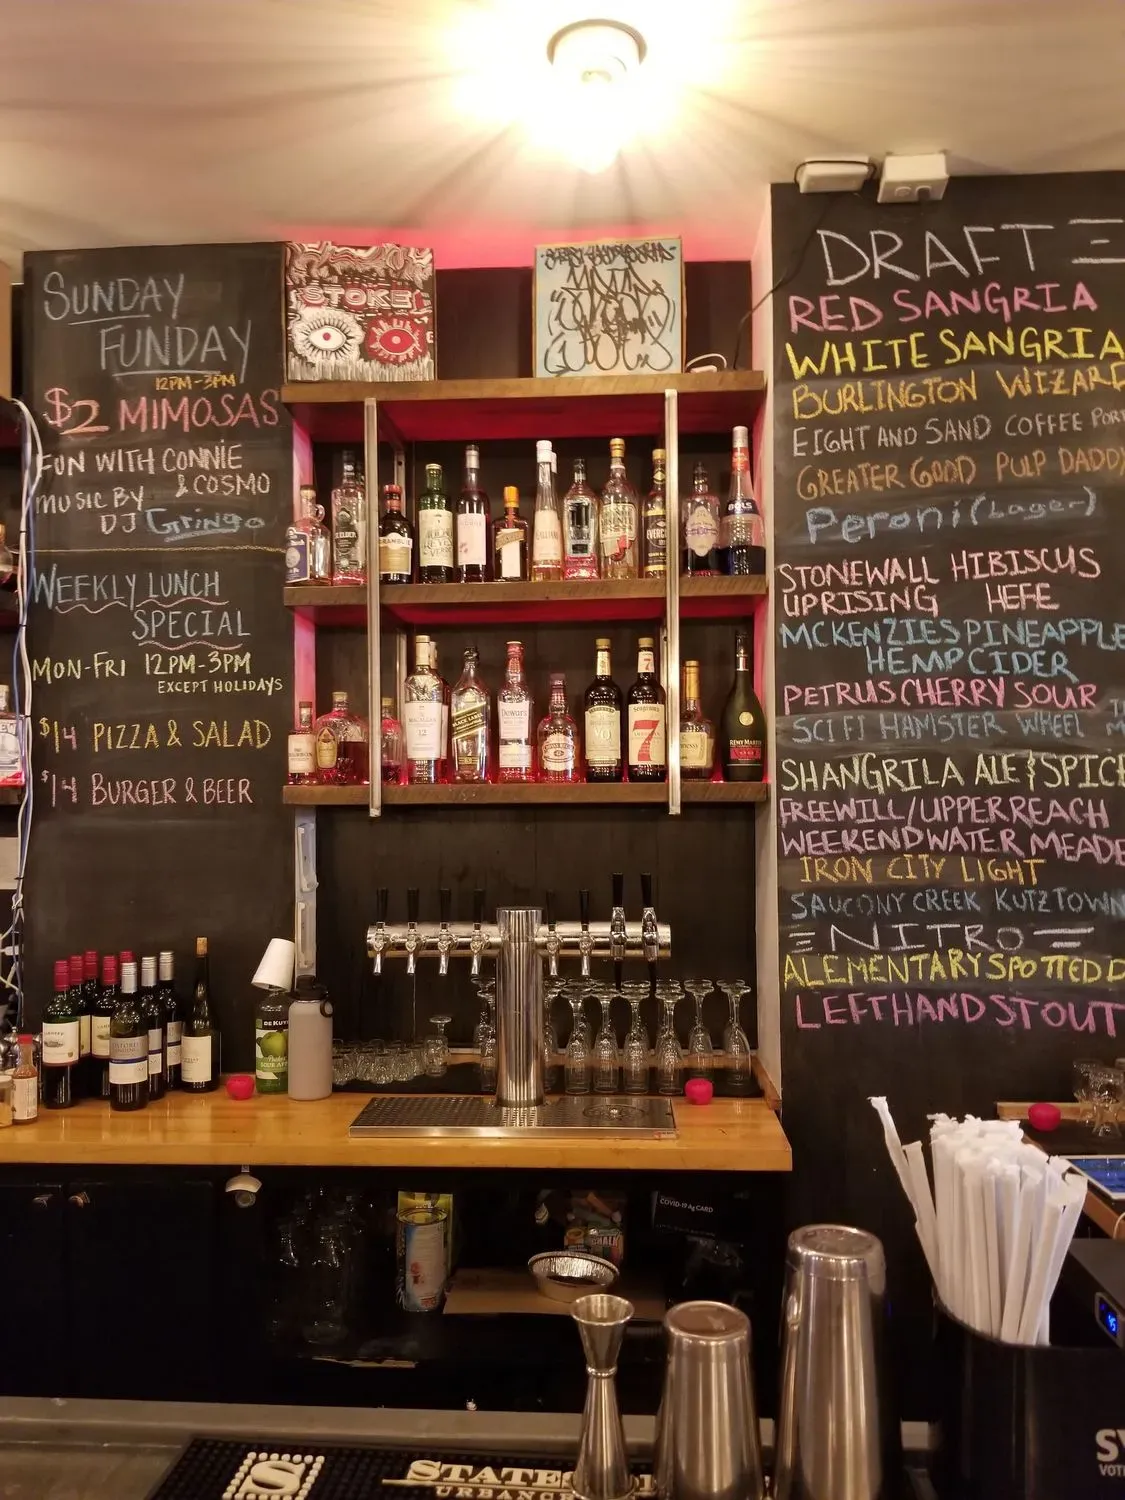 SUNDAY
FUNDAY
12PM-3PM
$2 MIMOSAS
FUN WITH CONNIE
& COSMO
MUSIC BY
DJ Gringo
WEEKLY LUNCH
SPECIAL
MON-FRI 12PM-3PM
EXCEPT HOLIDAYS
$14 PIZZA & SALAD
$14 BURGER & BEER
STOKE
BOLS
MACALLAN
12
BLACK LABEL
Dewar's
VO
7
7
RÉMY MARTIN
DRAFT
RED SANGRIA
WHITE SANGRIA
BURLINGTON WIZARD
EIGHT AND SAND COFFEE POR
GREATER GOOD PULP DADDY
Peroni (Lager)
STONEWALL HIBISCUS
UPRISING HEFE
MCKENZIES PINEAPPLE
HEMP CIDER
PETRUS CHERRY SOUR
SCI FI HAMSTER WHEEL
SHANGRILA ALE & SPICE
FREEWILL/UPPER REACH
WEEKEND WATER MEADE
IRON CITY LIGHT
SAUCONY CREEK KUTZTOWN
NITRO
ALEMENTARY SPOTTED D
LEFTHAND STOUT
DE KUY
SOUR
COVID-19 Ag CARD
CHALK
45
S
STATES
URBAN
SV
VOT